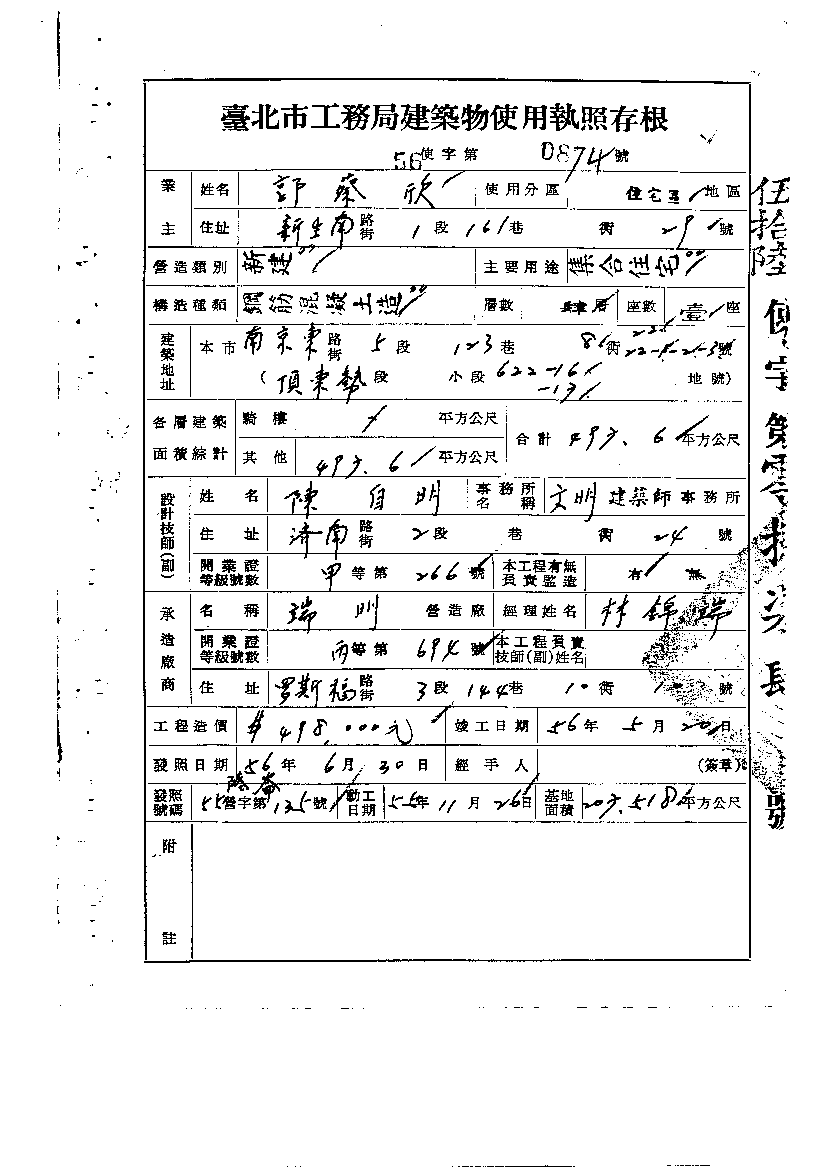 臺北市工務局建築物使用執照存根
56使字第 0874號
業主 姓名 郭蔡欣 使用分區 住宅區地區
住址 新生南路街 1段161巷 衖 29號
營造類別 新建 主要用途 集合住宅
構造種類 鋼筋混凝土造 層數 肆層 座數 壹座
建築地址 本市南京東路街 5段 123巷 8衖 號
(頂東勢段 小段 622-161 -131 地號)
各層建築面積綜計 騎樓 平方公尺 合計 493.61平方公尺
其他 493.61平方公尺
設計技師(副) 姓名 陳自明 事務所名稱 文明建築師事務所
住址 濟南路街 2段 巷 衖 24號
開業證等級號數 甲等第 266號 本工程有無負責監造 有 無
承造廠商 名稱 瑞明 營造廠 經理姓名 林錦瑞
開業證等級號數 丙等第 694號 本工程負責技師(副)姓名
住址 羅斯福路街 3段 144巷 10衖 號
工程造價 $498,000元 竣工日期 56年5月20日
發照日期 56年6月30日 經手人 (簽章)
發照號碼 55營字第135號 動工日期 55年11月26日 基地面積 203.518平方公尺
附註
伍拾陸使字第零捌柒肆號